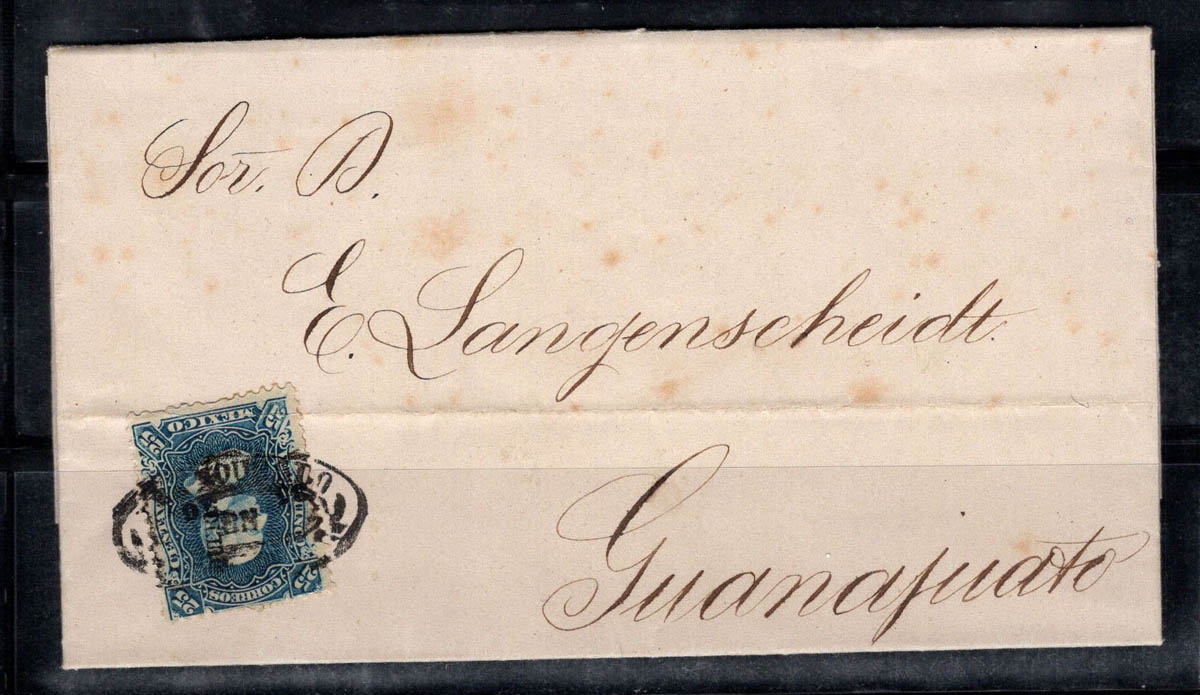 Sor. D.
E. Langenscheidt.
Guanajuato
MEXICO
25 25
CORREOS
25 25